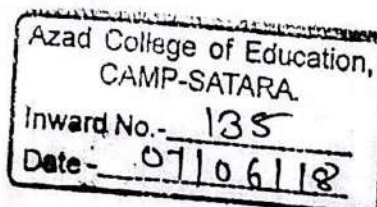 Azad College of Education,
CAMP-SATARA.
Inward No.- 135
Date - 07/06/18